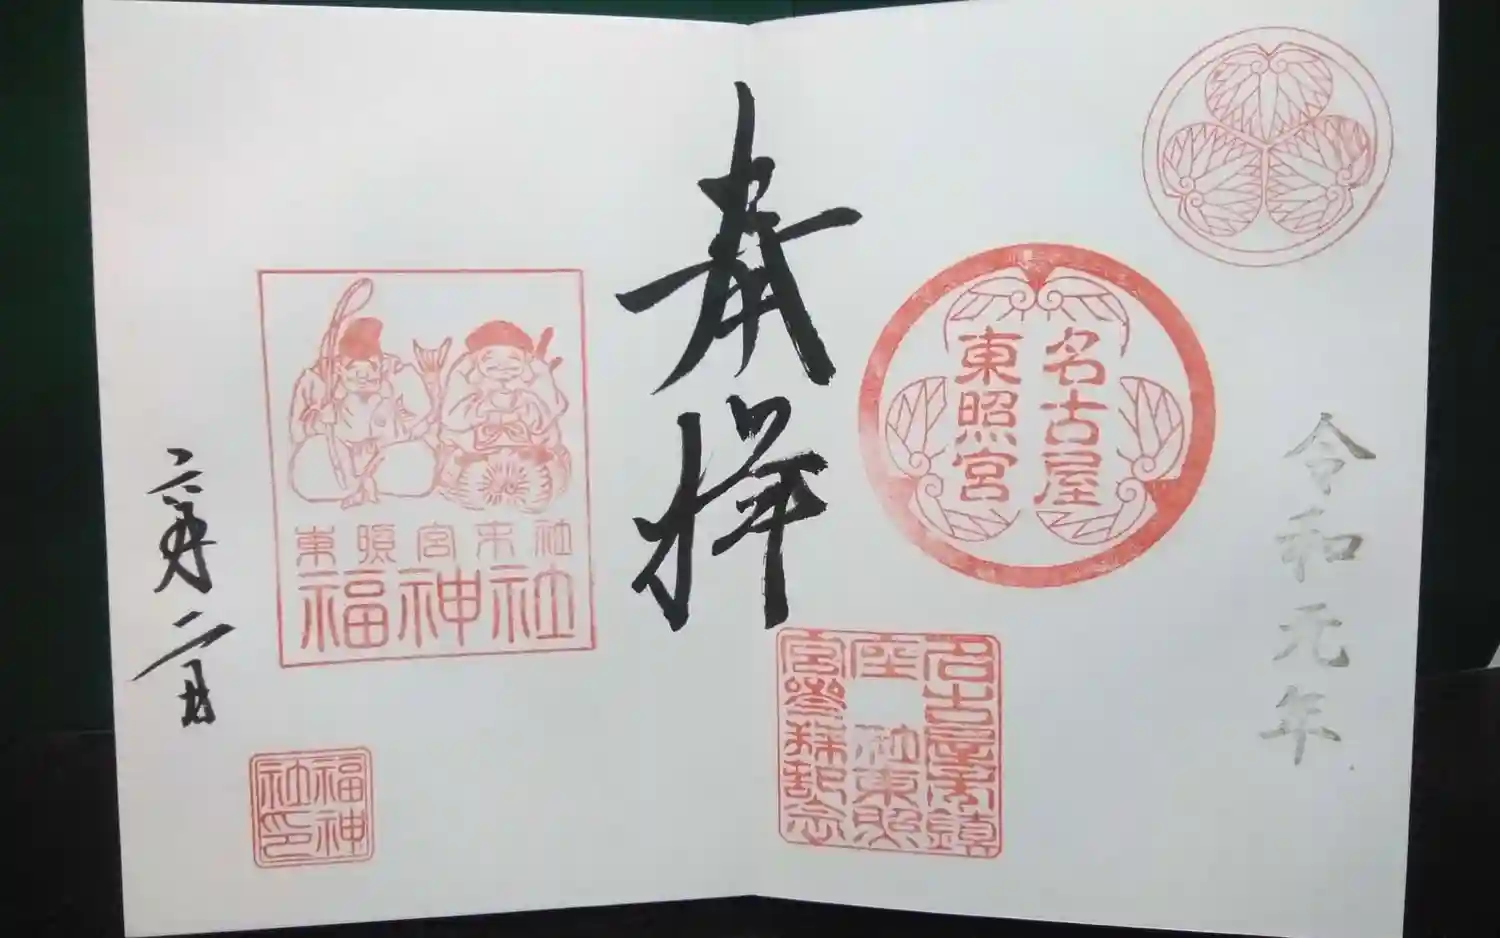 令和元年
名古屋
東照宮
名古屋市鎮
座 社東照
宮參拜記念
奉拝
東照宮末社
福神社
六月二日
福神
社印